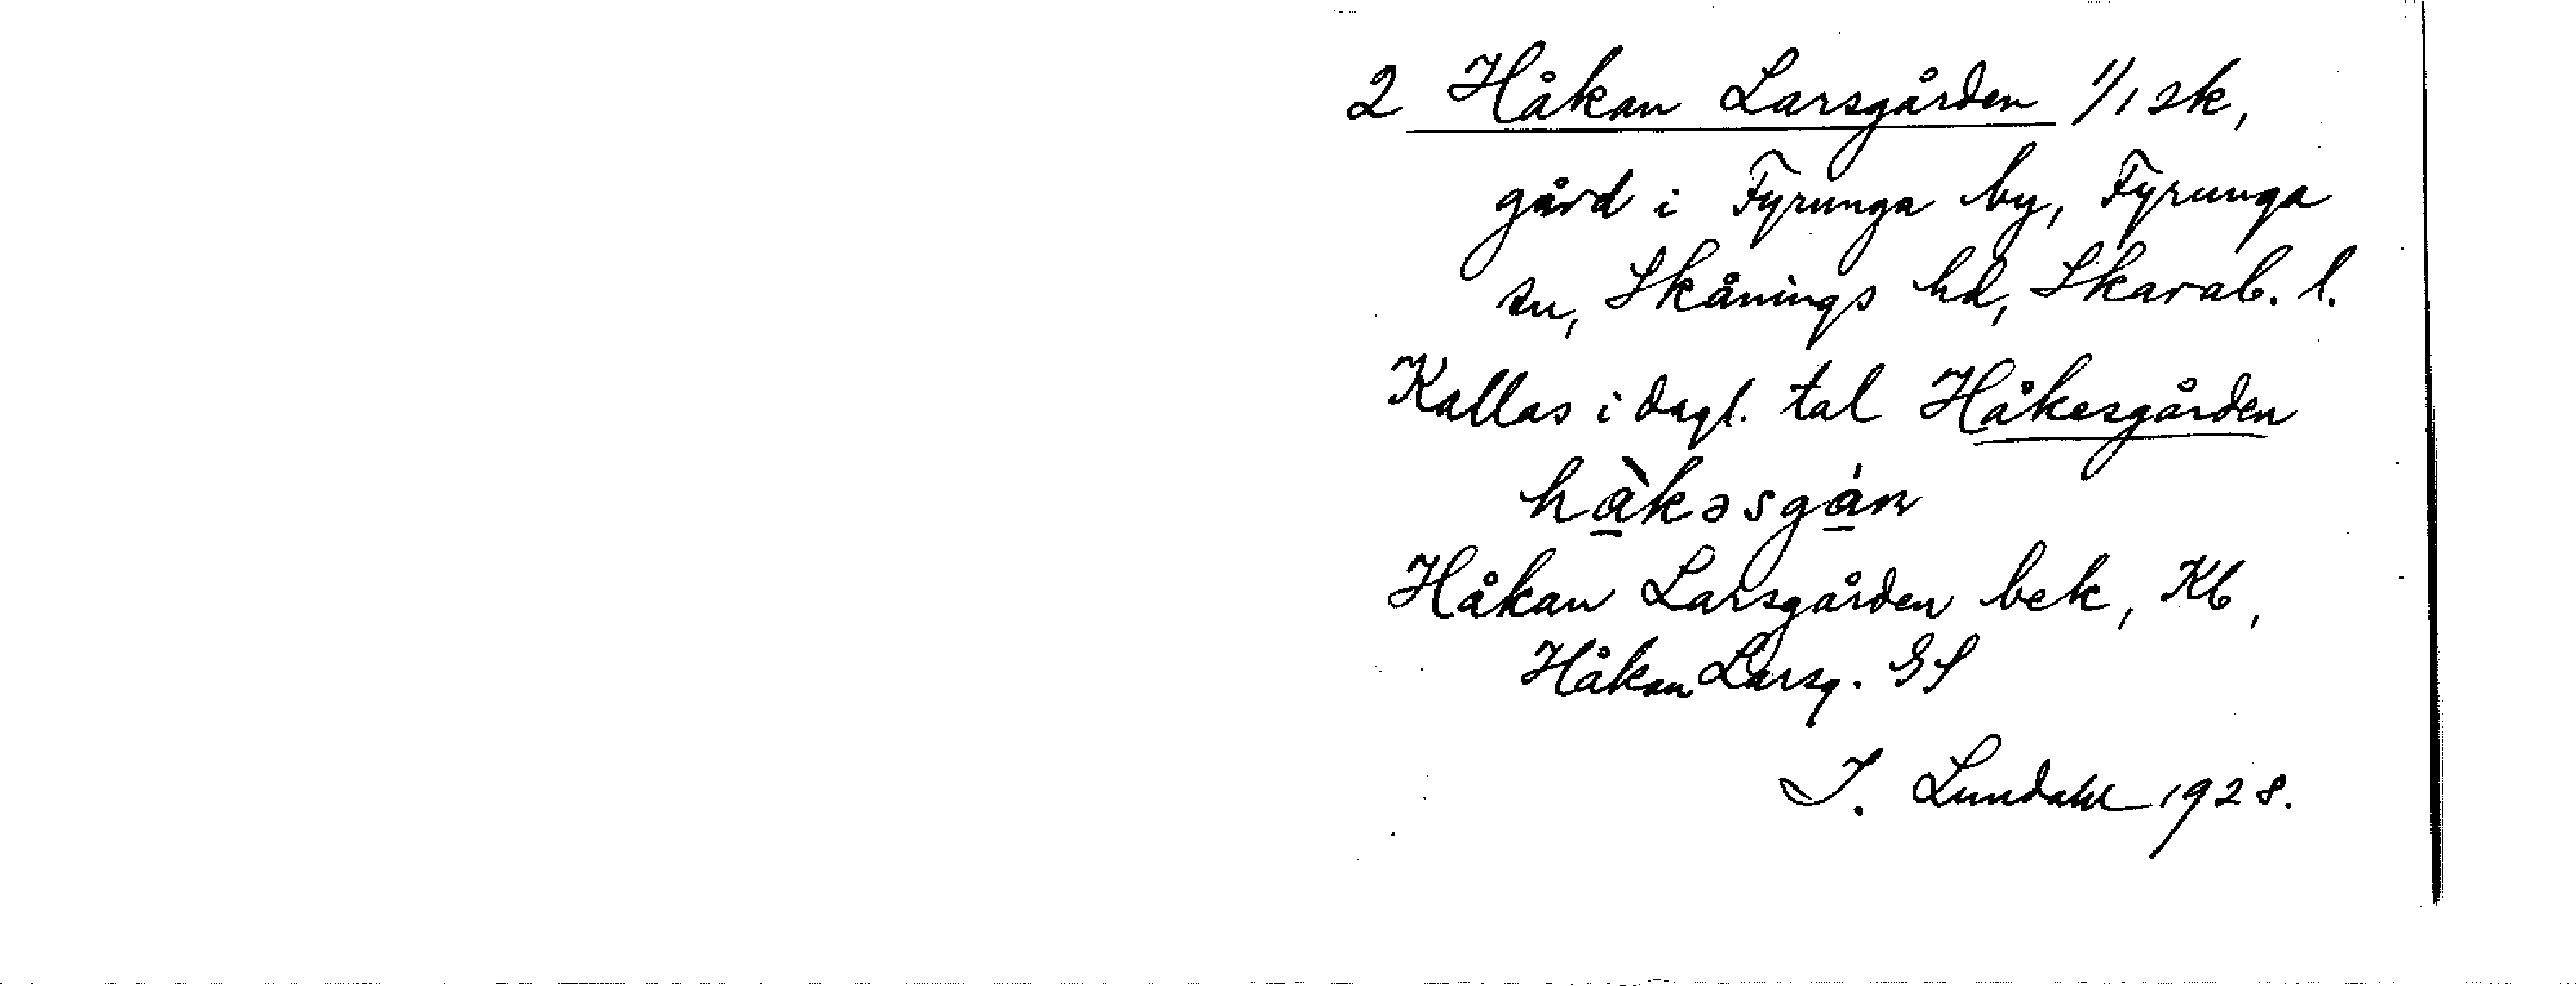 2 Håkan Larsgården 1/1 sk,
gård i Fyrunga by, Fyrunga
sn, Skånings hd, Skarab. l.
Kallas i dagl. tal Håkesgården
hàkəsgán
Håkan Larsgården bek, Kb,
Håkan Larsg. GS
I. Lundahl 1928.